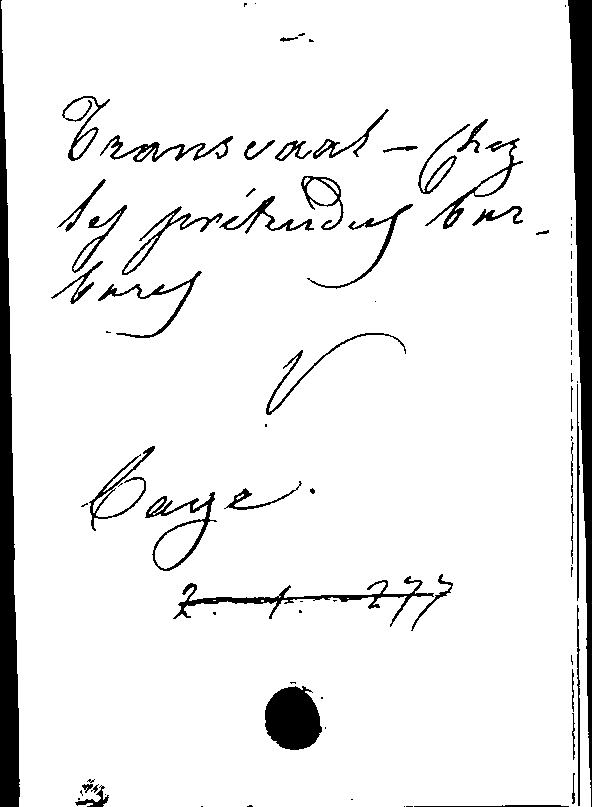 Transvaal — Chez
les prétendus bar-
bares
V
Caye.
2. 1. 277